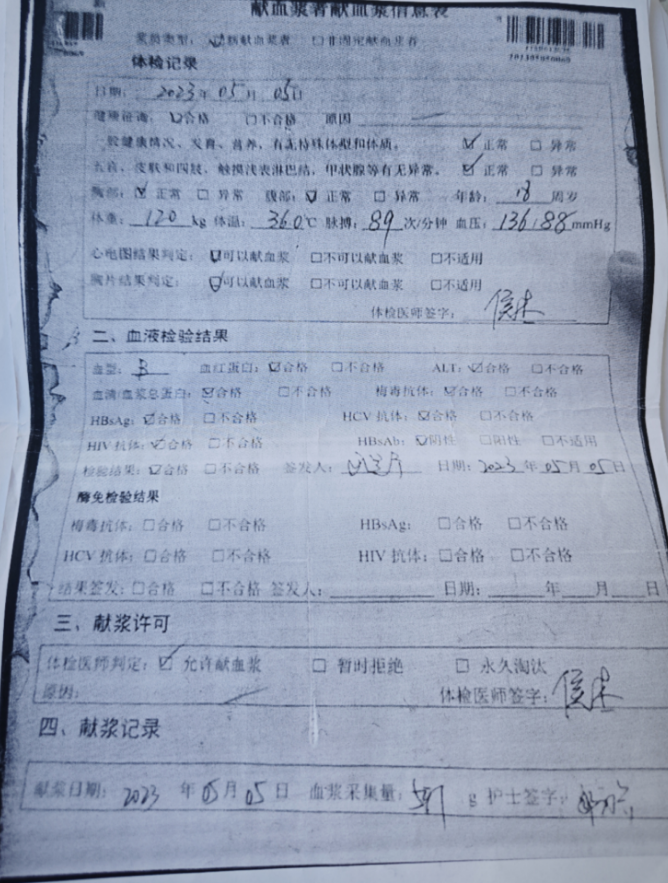 献血浆者献血浆信息表
浆员类型： ☑新献血浆者 □非固定献血浆者
体检记录
日期： 2023年 05月 05日
健康征询：☑合格 □不合格 原因
一般健康情况、发育、营养，有无特殊体型和体质。 ☑正常 □异常
五官、皮肤和四肢，触摸浅表淋巴结，甲状腺等有无异常。 ☑正常 □异常
胸部：☑正常 □异常 腹部：☑正常 □异常 年龄： 18 周岁
体重： 120 kg 体温： 36.0℃ 脉搏： 89 次/分钟 血压： 136/88 mmHg
心电图结果判定： ☑可以献血浆 □不可以献血浆 □不适用
胸片结果判定： ☑可以献血浆 □不可以献血浆 □不适用
体检医师签字：
二、血液检验结果
血型： B 血红蛋白：☑合格 □不合格 ALT：☑合格 □不合格
血清/血浆总蛋白：☑合格 □不合格 梅毒抗体：☑合格 □不合格
HBsAg：☑合格 □不合格 HCV抗体：☑合格 □不合格
HIV抗体：☑合格 □不合格 HBsAb：☑阴性 □阳性 □不适用
检验结果：☑合格 □不合格 签发人： 日期：2023年05月05日
酶免检验结果
梅毒抗体：□合格 □不合格 HBsAg： □合格 □不合格
HCV抗体：□合格 □不合格 HIV抗体：□合格 □不合格
结果签发：□合格 □不合格 签发人： 日期： 年 月 日
三、献浆许可
体检医师判定：☑ 允许献血浆 □ 暂时拒绝 □ 永久淘汰
原因： 体检医师签字：
四、献浆记录
献浆日期： 2023 年05月05日 血浆采集量： g 护士签字：